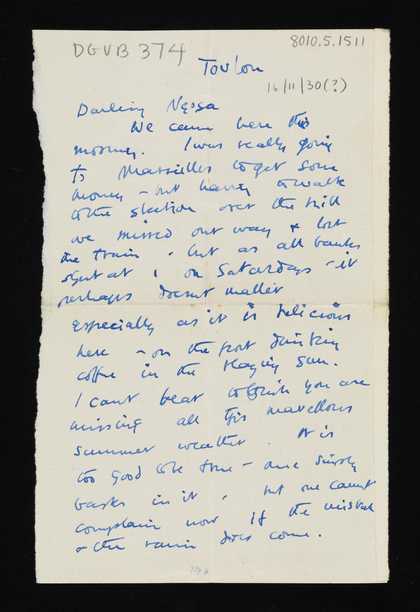 DGVB 374
8010.5.1511
Toulon
16/11/30(?)
Darling Nessa
We came here this
morning. I was really going
to Marseilles to get some
money – but having to walk
to the station over the hill
we missed our way & lost
the train. but as all banks
shut at 1 on Saturdays – it
perhaps doesnt matter
especially as it is delicious
here – on the port drinking
coffee in the blazing sun.
I cant bear to think you are
missing all this marvellous
summer weather. It is
too good to be true – one simply
basks in it, but one cannt
complain now if the mistral
& the rain does come.